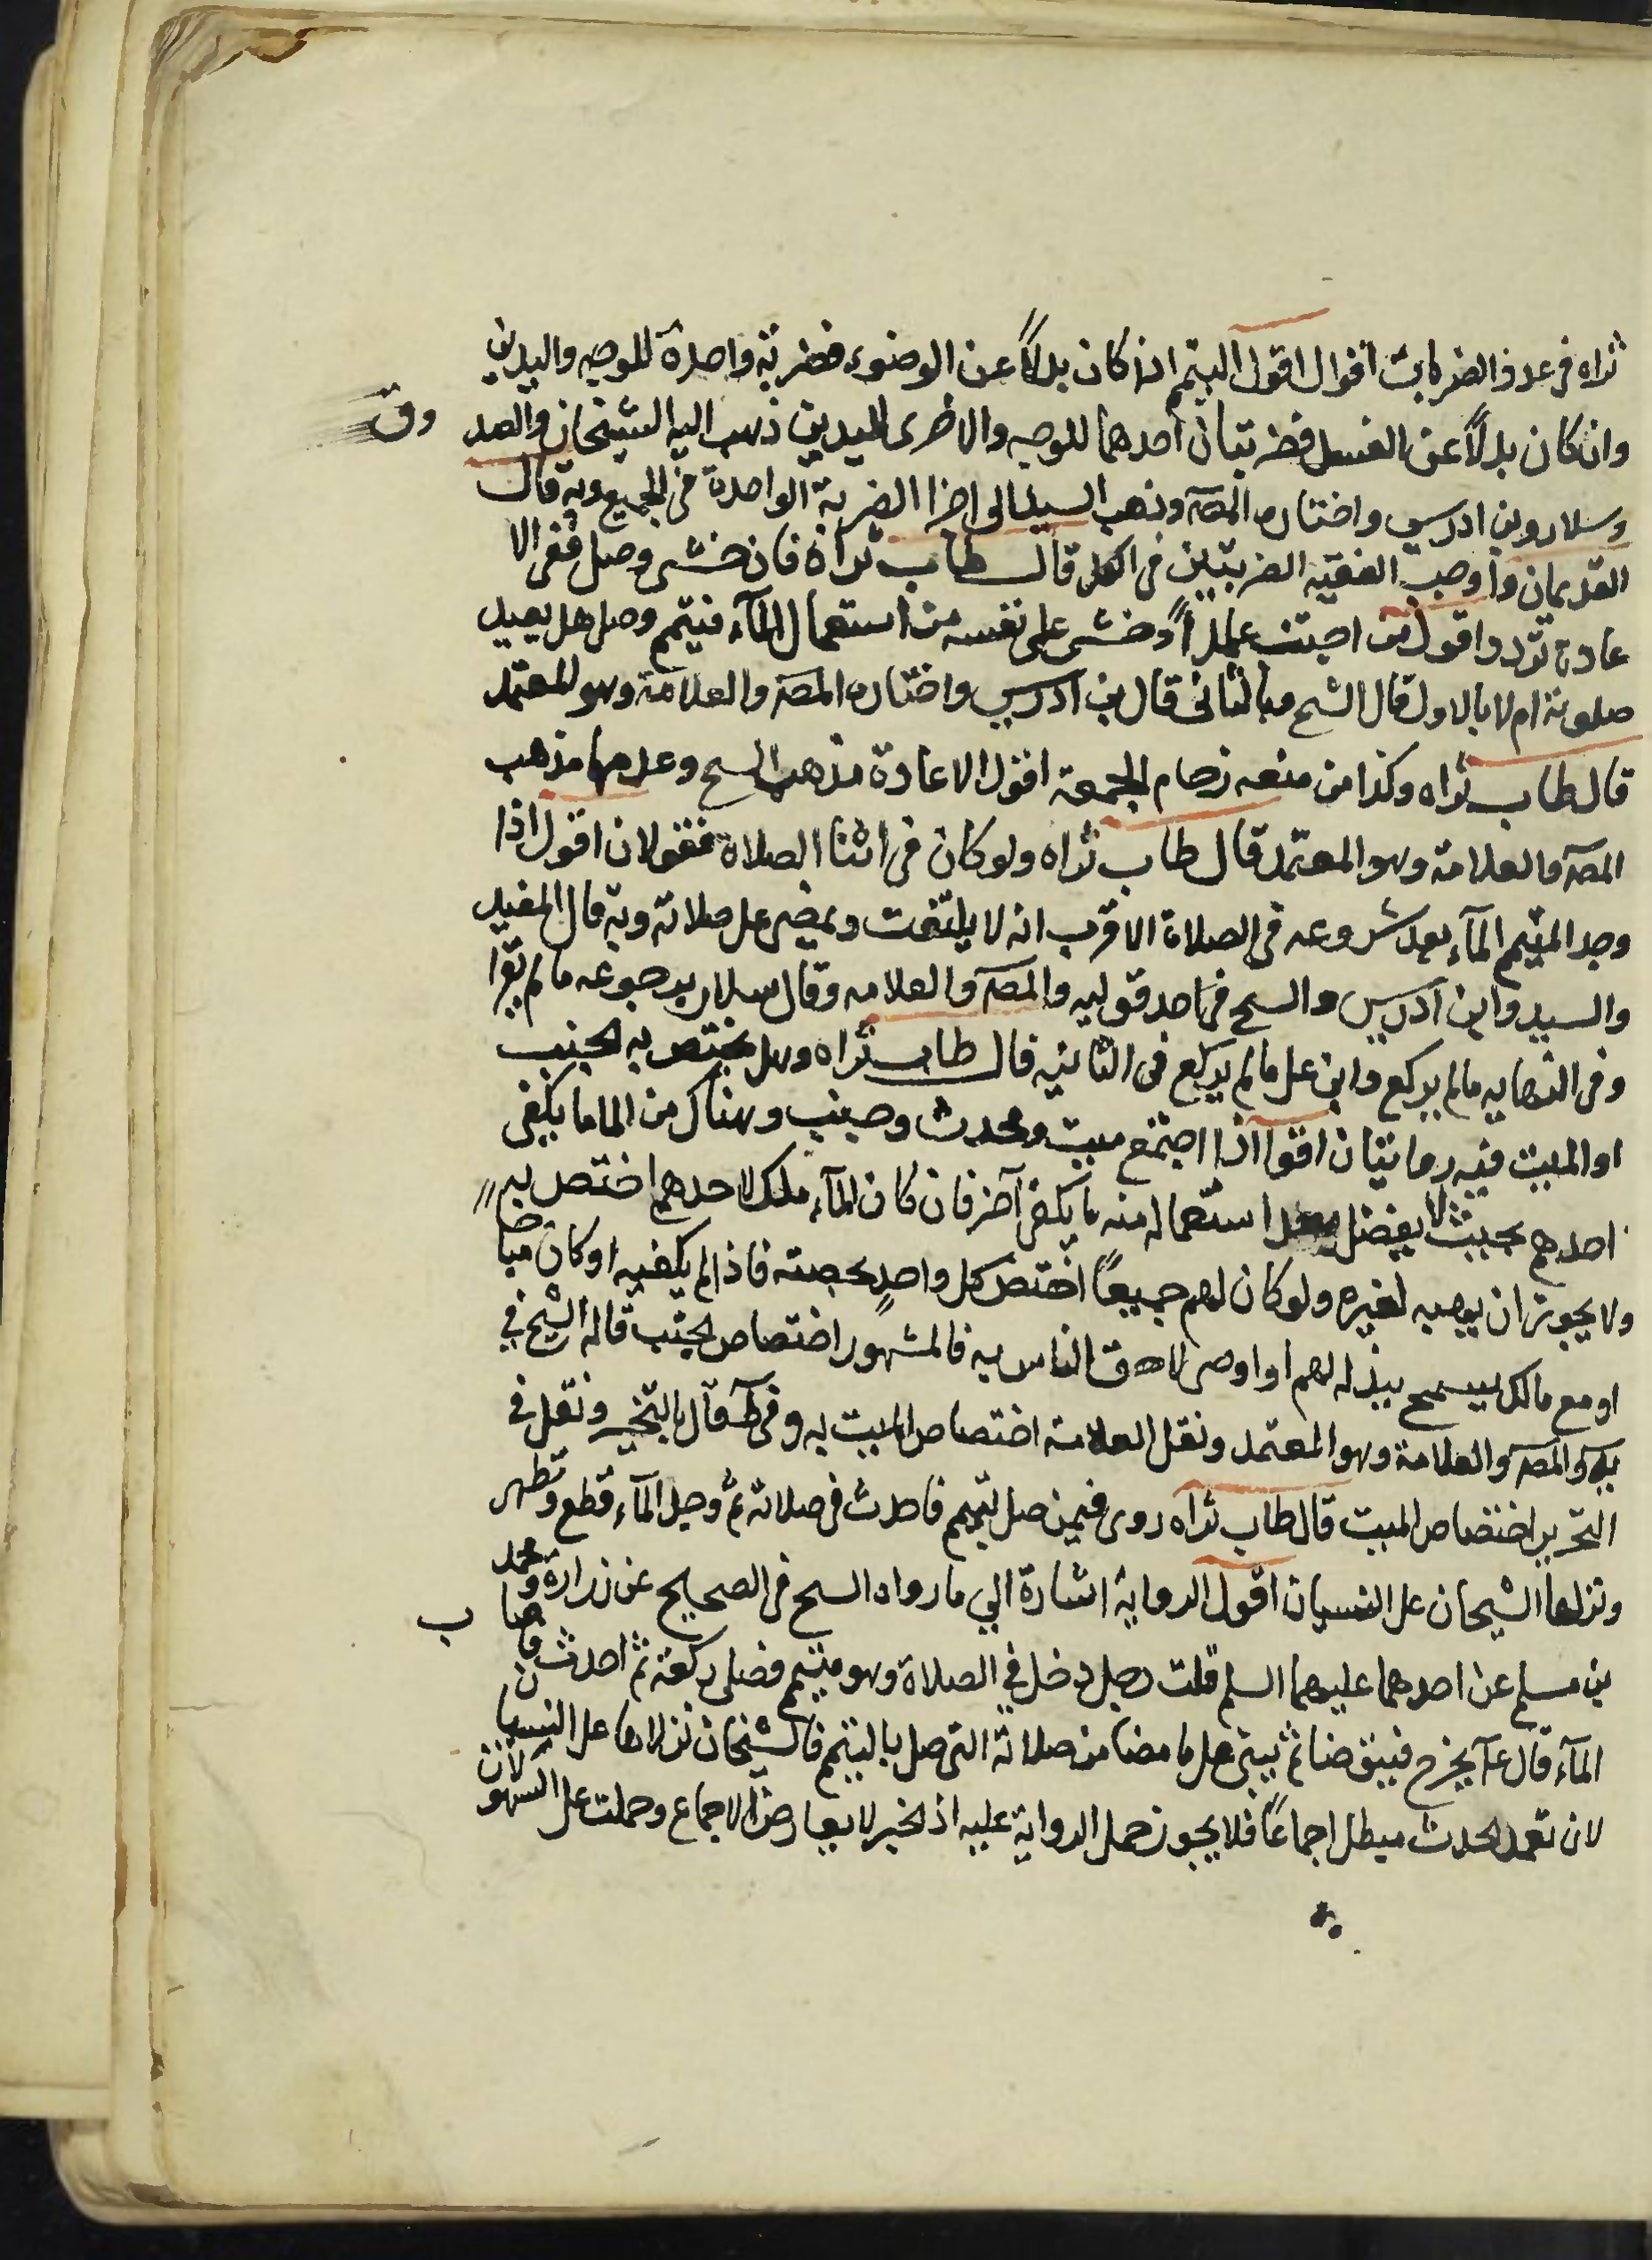 ثراه فى عدد الضربات اقوال اقول التيمم اذا كان بدلاً عن الوضوء فضربة واحدة للوجه واليدين
وان كان بدلاً عن الغسل فضربتان احدهما للوجه والاخرى لليدين ذهب اليه الشيخان والصد وق
وسلار وبن ادريس واختاره المصَ وذهب السيد الى اجزا الضربة الواحدة فى الجميع وبه قال
القديمان واوجب الفقيه الضربتين فى الكل قال طاب ثراه فان خشى وصلى ففى الا
عادة تردد اقول من اجنب عمداً وخشى على نفسه من استعمال المآء فتيمم وصلى هل يعيد
صلوته ام لا بالاول قال الشيخ وبالثانى قال بن ادريس واختاره المصَ والعلامة وهو المعتمد
قال طاب ثراه وكذا من منعه زحام الجمعة اقول الاعادة مذهب الشيخ وعدمها مذهب
المصَ والعلامة وهو المعتمد قال طاب ثراه ولو كان فى اثنا الصلاة فقولان اقول اذا
وجد المتيمم المآء بعد شروعه فى الصلاة الاقرب انه لا يلتفت ويمضى على صلاته وبه قال المفيد
والسيد وابن ادريس والشيخ فى احد قوليه والمصَ والعلامه وقال سلار يرجوعه ما لم يقرا
وفى النهايه مالم يركع وابن على ما لم يركع فى الثانيه قال طاب ثراه وهل يختص به الجنب
او الميت فيه روايتان اقول اذا اجتمع ميت ومحدث وجنب وهناك من الما ما يكفى
احدهم بحيث لا يفضل بعد استعماله منه ما يكفى آخر فان كان المآء ملك لاحدهم اختص به
ولا يجوز ان يوهبه لغيره ولو كان لهم جميعاً اختص كل واحدٍ بحصته فاذا لم يكفيه او كان مبا حا
او مع مالك يسمح ببذله لهم او اوصى لاحق الناس به فالمشهور اختصاص الجنب قاله الشيخ في
يه والمصَ والعلامة وهو المعتمد ونقل العلامة اختصاص الميت به وفى طَ قال بالتخيير ونقل فى
التحرير اختصاص الميت قال طاب ثراه روى فيمن صلى بتيمم فاحدث فى صلاته ثم وجد المآء قطع وتطهر
ونزلها الشيخان على النسيان اقول الرواية اشارة الي ما رواه الشيخ فى الصحيح عن زرارة ومحمد
بن مسلم عن احدهما عليهما السلم قلت رجل دخل في الصلاة وهو متيمم فصلى ركعة ثم احدث فاصا ب
المآء قال عَ يخرج فيتوضا ثم يبنى على ما مضا من صلاته التى صلى بالتيمم فالشيخان نزلاها على النسيا ن
لان تعمد الحدث مبطل اجماعاً فلا يجوز حمل الرواية عليه اذ الخبر لا يعارض الاجماع وحملت على السهو لان